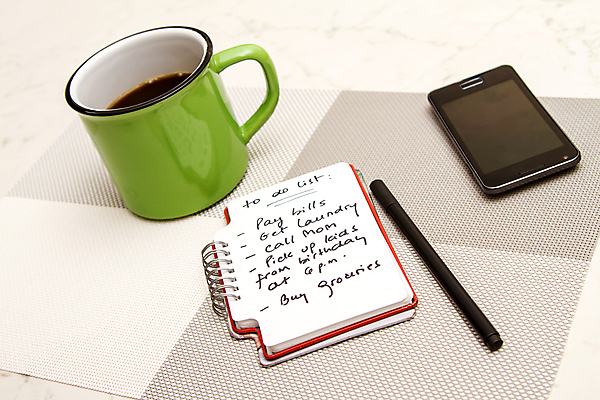 to do list:
- Pay bills
- Get Laundry
- call Mom
- Pick up kids
from birthday
at 6 p.m.
- Buy groceries